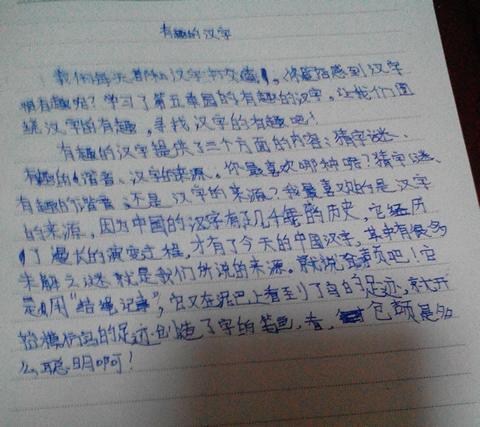 有趣的汉字
我们每天都和汉字打交道,你是否感到汉字
很有趣呢?学习了第五单园的有趣的汉字,让我们围
绕汉字的有趣,寻找汉字的有趣吧!
有趣的汉字提供了三个方面的内容:猜字谜、
有趣的谐音、汉字的来源。你最喜欢哪种呢?猜字谜、
有趣的谐音、还是汉字的来源?我最喜欢的是汉字
的来源,因为中国的汉字有了几千年的历史,它经历
了漫长的演变过程,才有了今天的中国汉字,其中有很多
未解之谜就是我们所说的来源。就说仓颉吧!它
是用“结绳记事”,它又在泥巴上看到了鸟的足迹,就开
始模仿鸟的足迹创造了字的笔色,看,仓颉是多
么聪明啊!